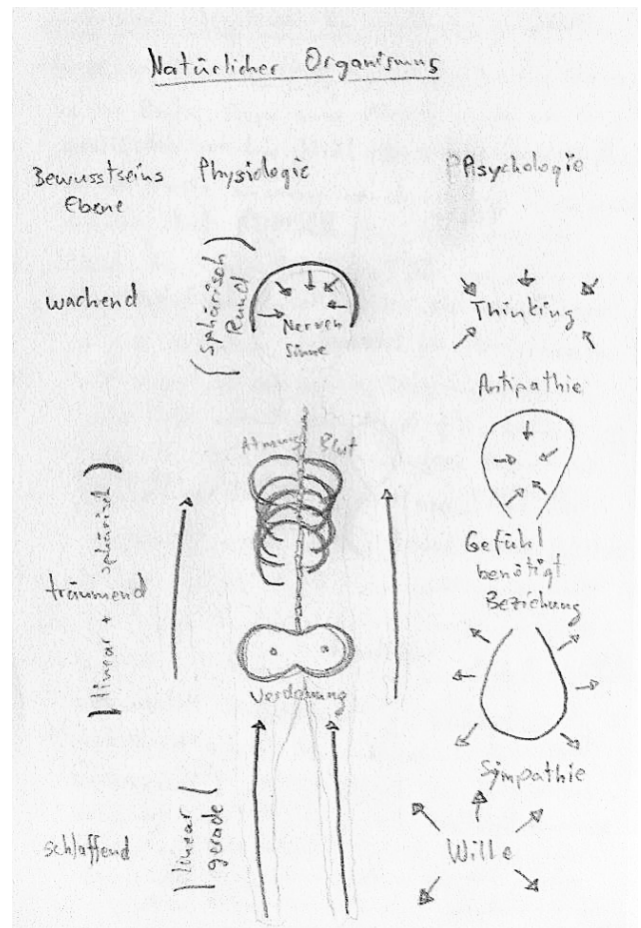 Natürlicher Organismus
Bewusstseins
Ebene
Physiologie
Psychologie
wachend
(sphärisch
Rund)
Nerven
Sinne
Thinking
Antipathie
Atmung Blut
träumend
(linear + sphärisch)
Gefühl
benötigt
Beziehung
Verdauung
Sympathie
schlaffend
(linear
gerade)
Wille